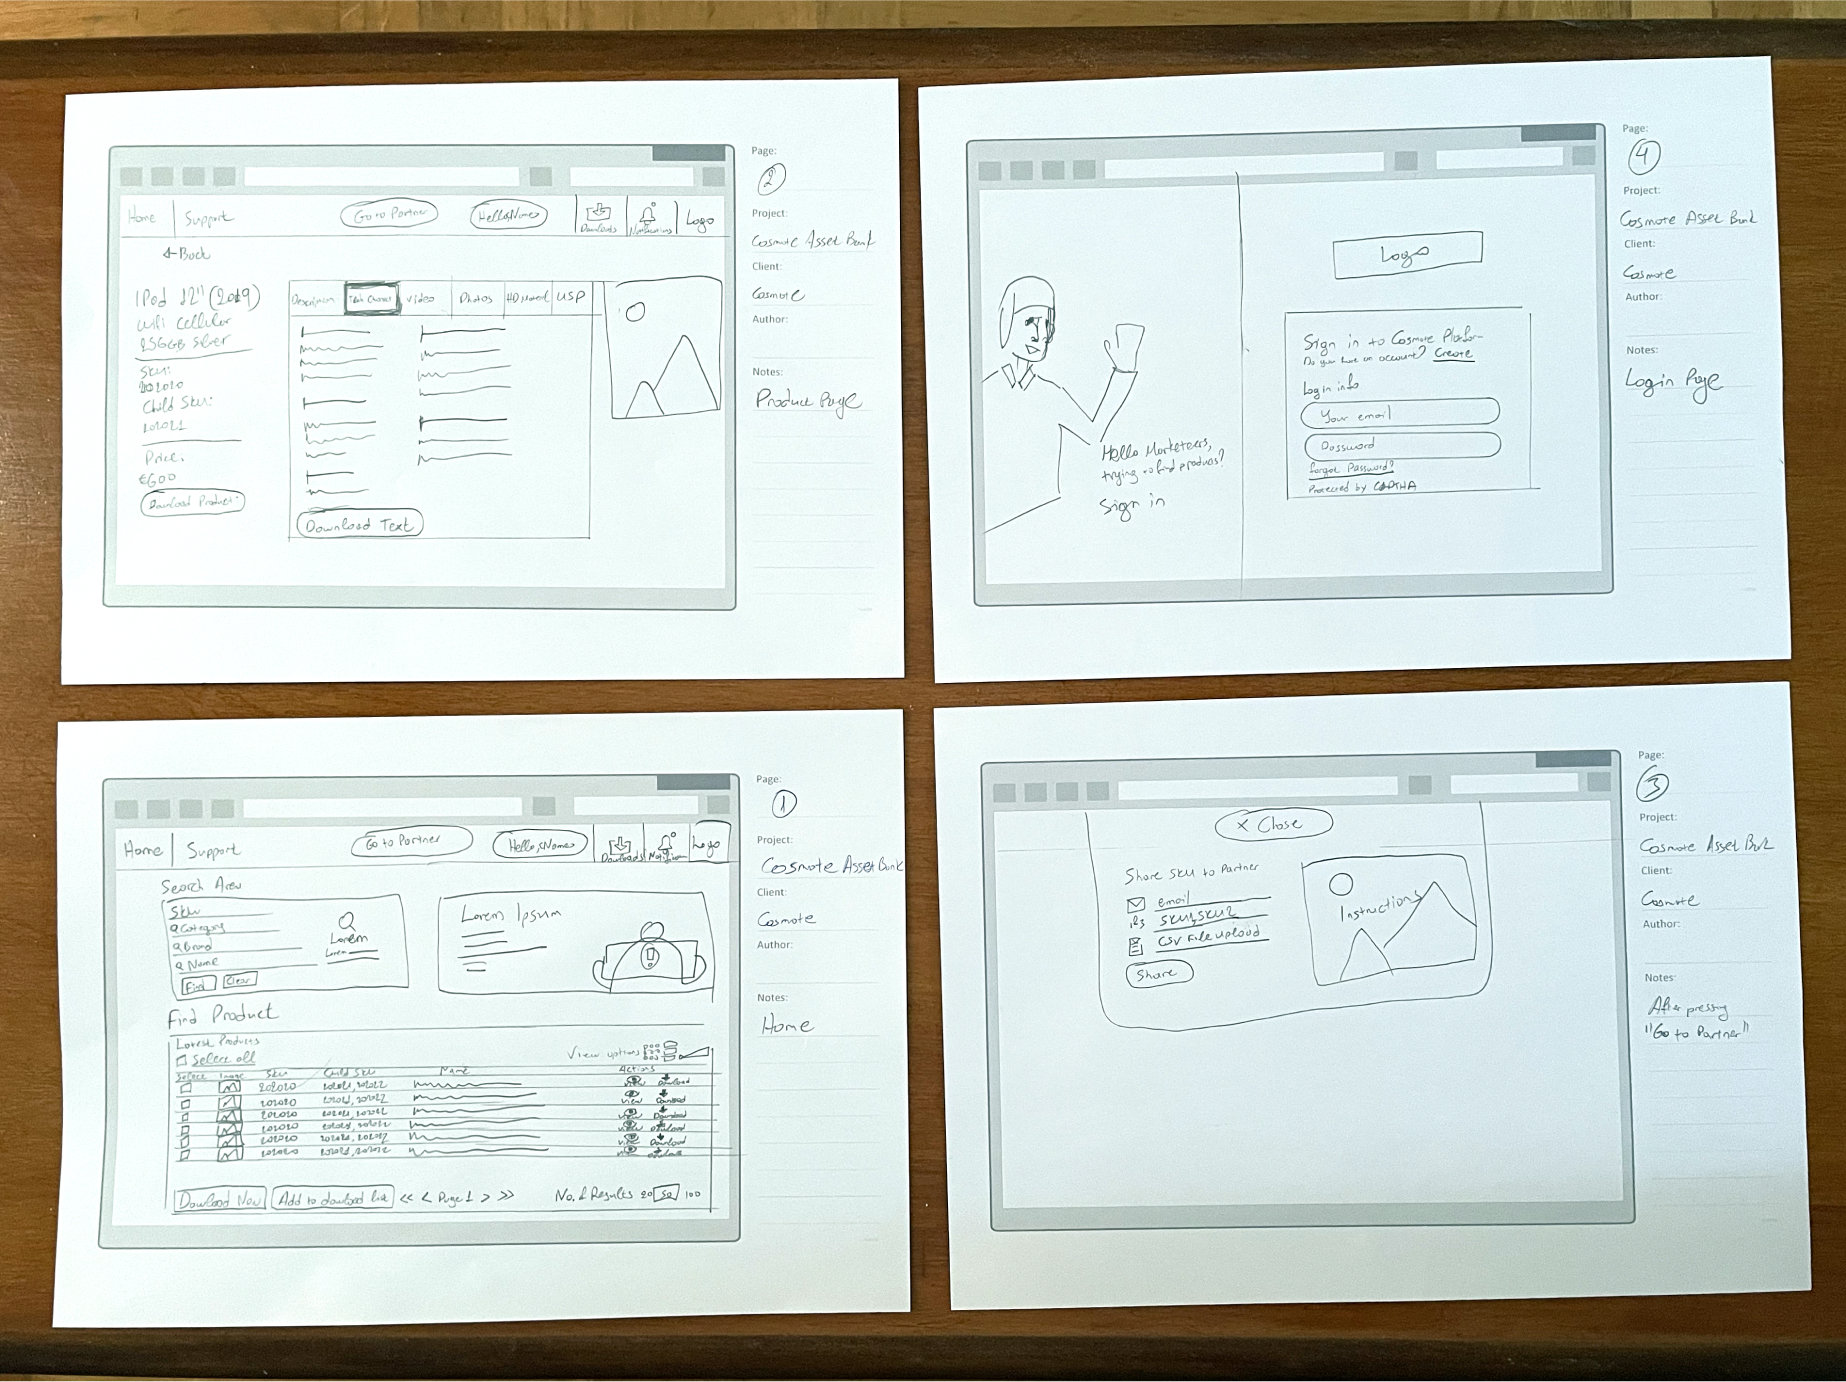 Home
Support
Go to Partner
Hello, Name
Downloads
Notifications
Logo
Back
Description
Video
Photos
USP
12" (2019)
Wifi Cellular
256GB Silver
Sku:
Child Sku:
202021
Price:
€600
Download Product
Download Text
Page:
2
Project:
Cosmote Asset Bank
Client:
Cosmote
Author:
Notes:
Product Page
Logo
Sign in to Cosmote Platfor
Do you have an account? Create
Login info
Your email
Password
Forgot Password?
Protected by
Hello Marketeers,
trying to find products?
Sign in
Page:
4
Project:
Cosmote Asset Bank
Client:
Cosmote
Author:
Notes:
Login Page
Home
Support
Go to Partner
Hello, Name
Downloads
Logo
Search Area
Sku
Category
Brand
Name
Find
Clear
Lorem
Lorem
Lorem Ipsum
Find Product
Latest Products
Select all
View options
Select Image Sku Child Sku Name Actions
202020 202021, 202022 view Download
202020 202021, 202022 view Download
202020 202021, 202022 view Download
202020 202021, 202022 view Download
202020 202021, 202022 view Download
202020 202021, 202022 view
Download Now
Add to download list
<< < Page 1 > >>
No. of Results 20 50 100
Page:
1
Project:
Cosmote Asset Bank
Client:
Cosmote
Author:
Notes:
Home
X Close
Share sku to Partner
email
sku1, sku2
CSV File upload
Share
Instructions
Page:
3
Project:
Cosmote Asset Bank
Client:
Cosmote
Author:
Notes:
After pressing
"Go to Partner"